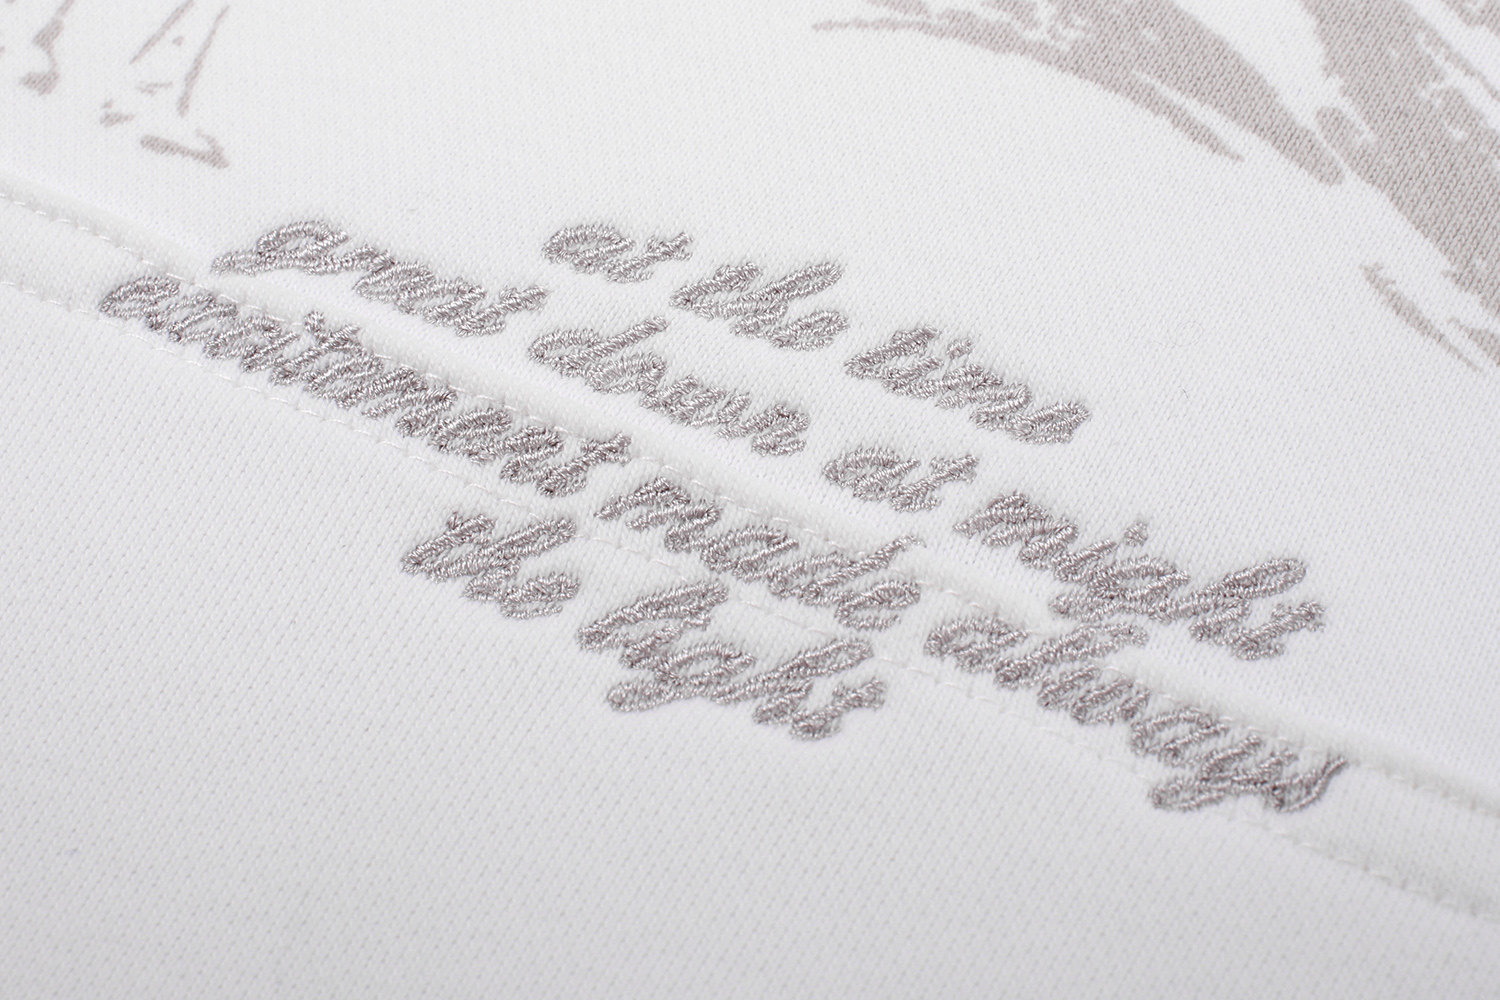 at the time
great down at might
excitement made always
the light